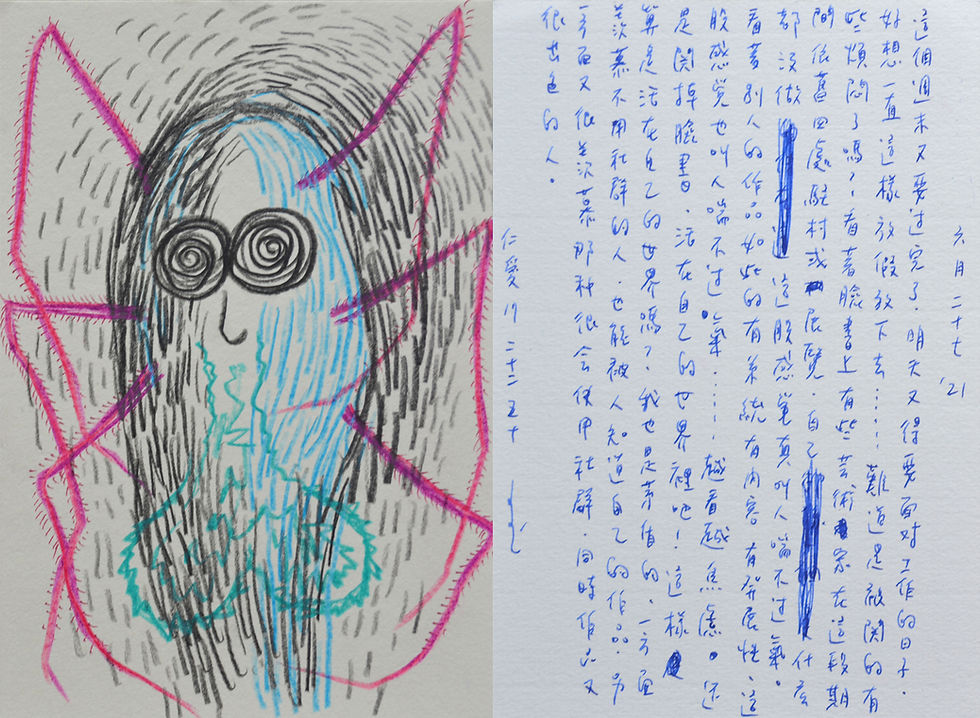 六月二十七 '21
這個週末又要過完了,明天又得要面對工作的日子。
好想一直這樣放假放下去……!難道是被關的有
些煩悶了嗎?看著臉書上有些芸術家在這段期
間依舊四處駐村或展覽,自己什麼
都沒做,這股感覺真叫人喘不過氣。
看著別人的作品如些的有系統有內容有發展性,這
股感覺也叫人喘不過氣……,越看越焦慮。还
是関掉臉書,活在自己的世界裡吧!這樣
算是活在自己的世界嗎?我也是的,一方面
羨慕不用社群的人,也能被人知道自己的作品,另
一方面又很羨慕那种很会使用社群,同時作品又
很出色的人。
仁愛 二十二五十